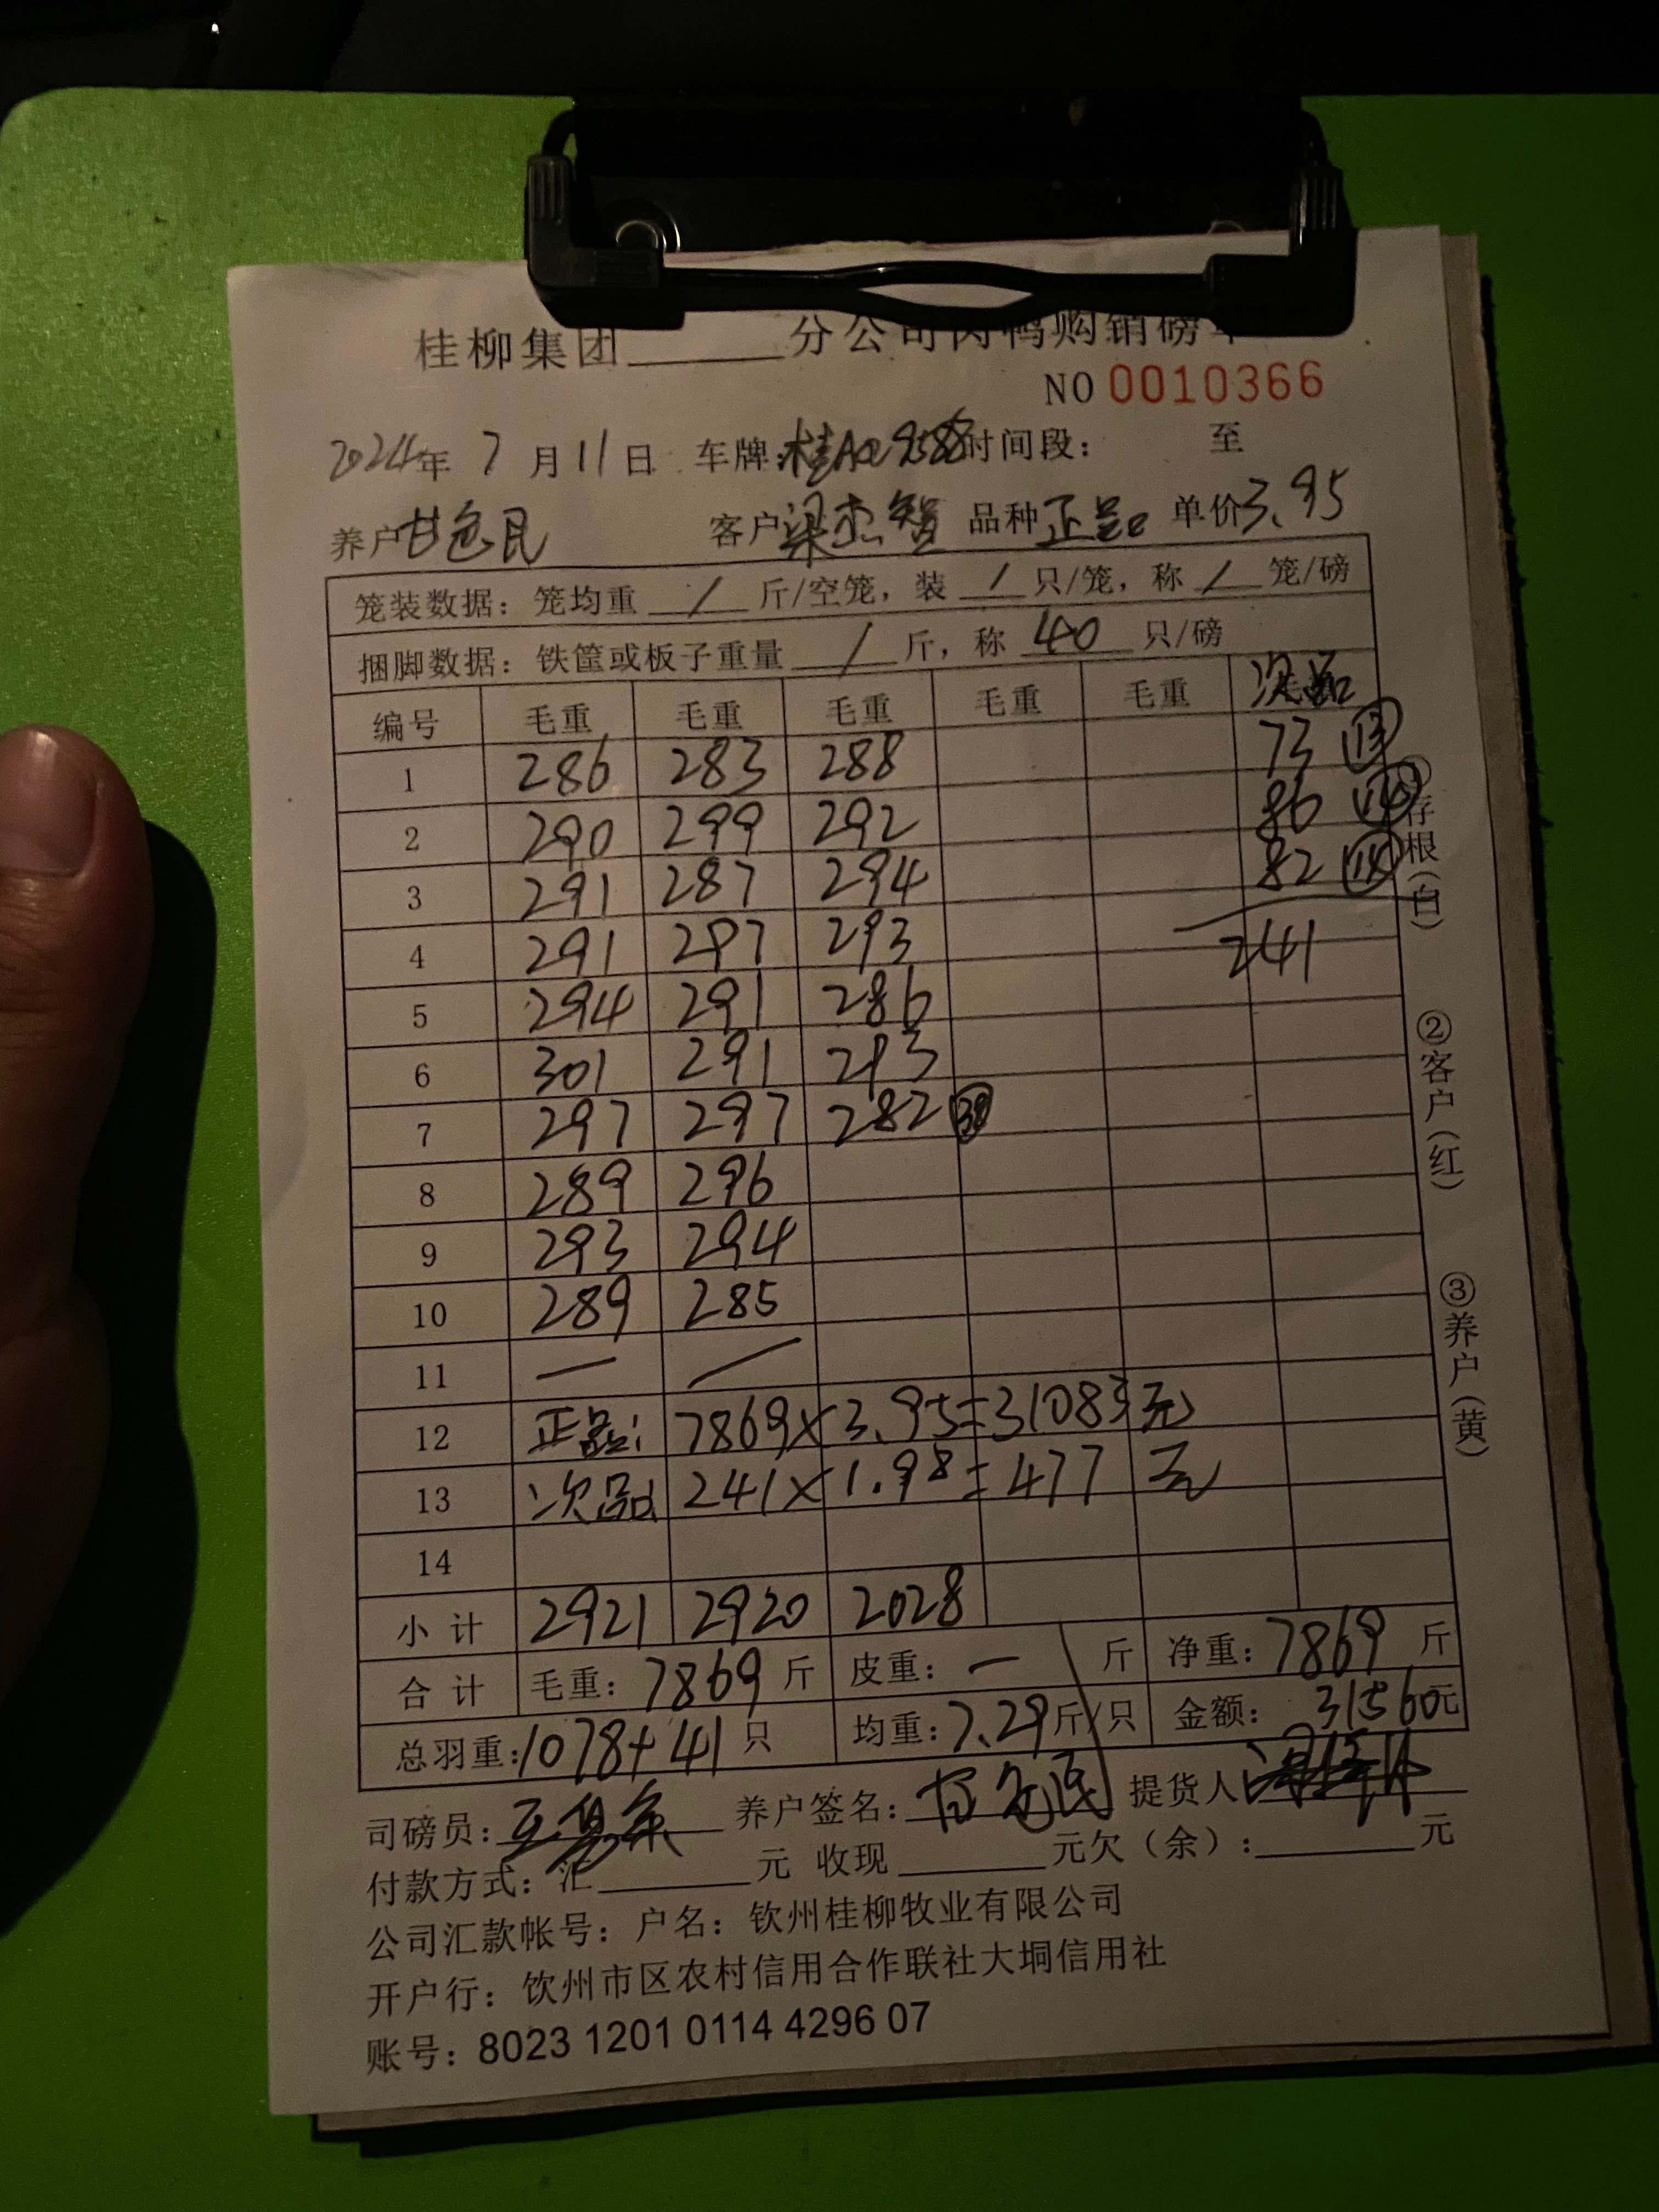 桂柳集团______分公司肉鸭购销磅单
NO 0010366
2024年 7 月 11 日 车牌: 时间段: 至
养户 客户 梁杰智 品种 正品 单价 3.95
笼装数据: 笼均重 / 斤/空笼, 装 / 只/笼, 称 / 笼/磅
捆脚数据: 铁筐或板子重量 / 斤, 称 40 只/磅
编号 毛重 毛重 毛重 毛重 毛重 次品
1 286 283 288 73 13
2 290 299 292 86 14
3 291 287 294 82
4 291 297 293 241
5 294 291 286
6 301 291 293
7 297 297 282 38
8 289 296
9 293 294
10 289 285
11 — —
12 正品: 7869×3.95=31083元
13 次品: 241×1.98=477元
14
小计 2921 2920 2028
合计 毛重: 7869 斤 皮重: — 斤 净重: 7869 斤
总羽重: 1078+41 只 均重: 7.29斤/只 金额: 31560元
司磅员: 养户签名: 提货人
付款方式: 汇______元 收现______元欠(余):______元
公司汇款帐号: 户名: 钦州桂柳牧业有限公司
开户行: 钦州市区农村信用合作联社大垌信用社
账号: 8023 1201 0114 4296 07
①存根(白)
②客户(红)
③养户(黄)